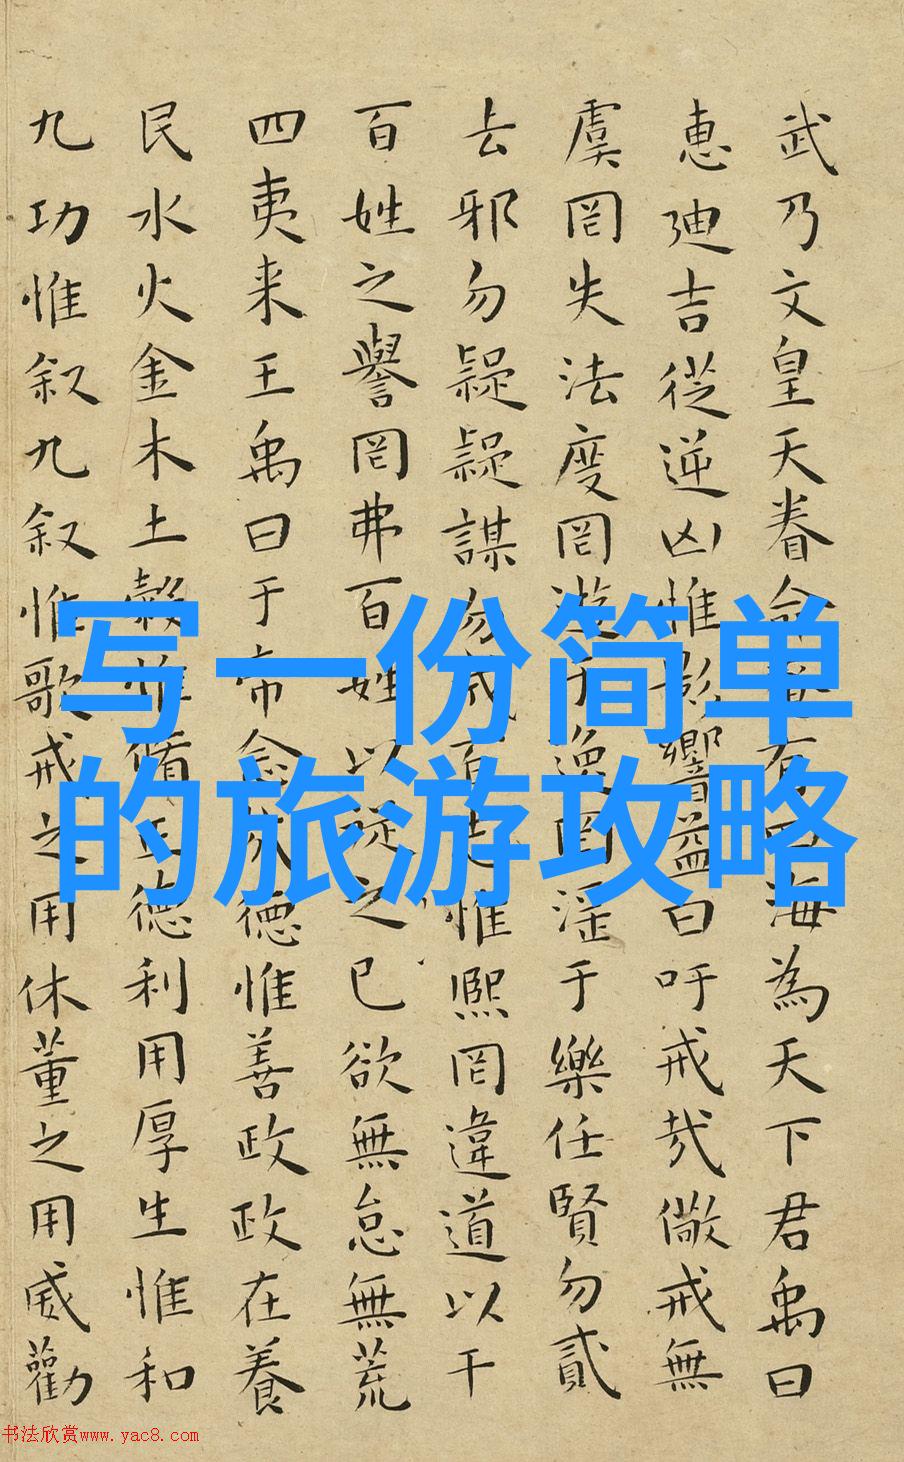 写一份简单
的旅游攻略
武乃文皇天眷命奄有四海為天下君禹曰
惠廸吉從逆凶惟影響益曰吁戒哉儆戒無
虞罔失法度罔遊于逸罔淫于樂任賢勿貳
去邪勿疑疑謀勿成百志惟熙罔違道以干
百姓之譽罔弗百姓以從之己欲無怠無荒
四夷来王禹曰于帝念哉德惟善政政在養
民水火金木土穀惟脩正德利用厚生惟和
九功惟叙九叙惟歌戒之用休董之用威勸
书法欣赏www.yac8.com